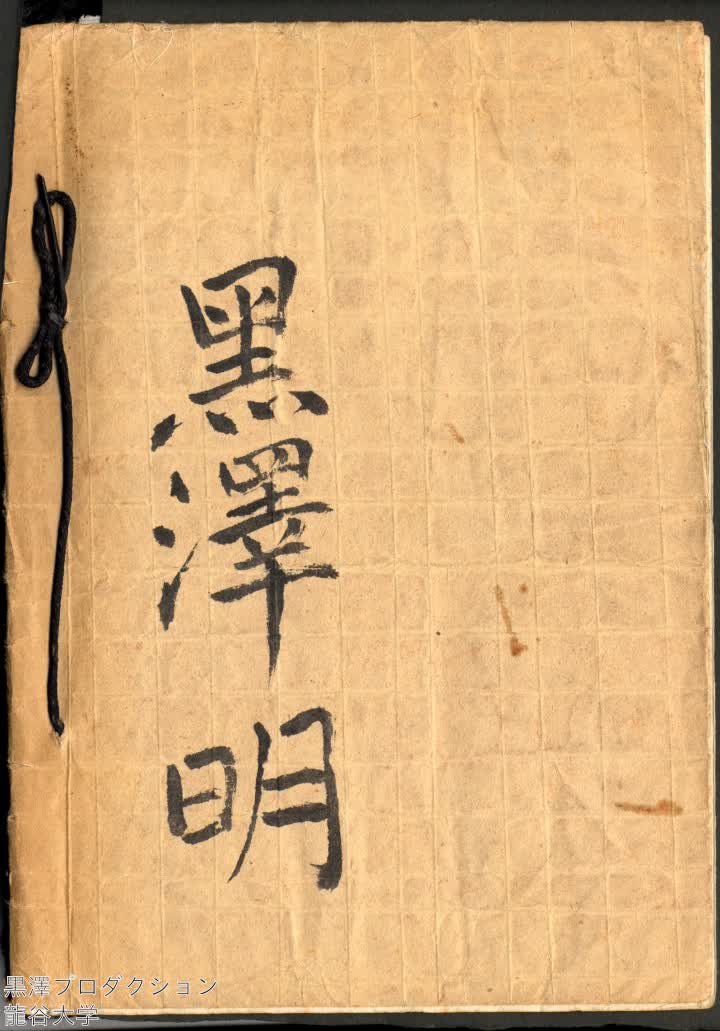 黒澤明
黒澤プロダクション
龍谷大学